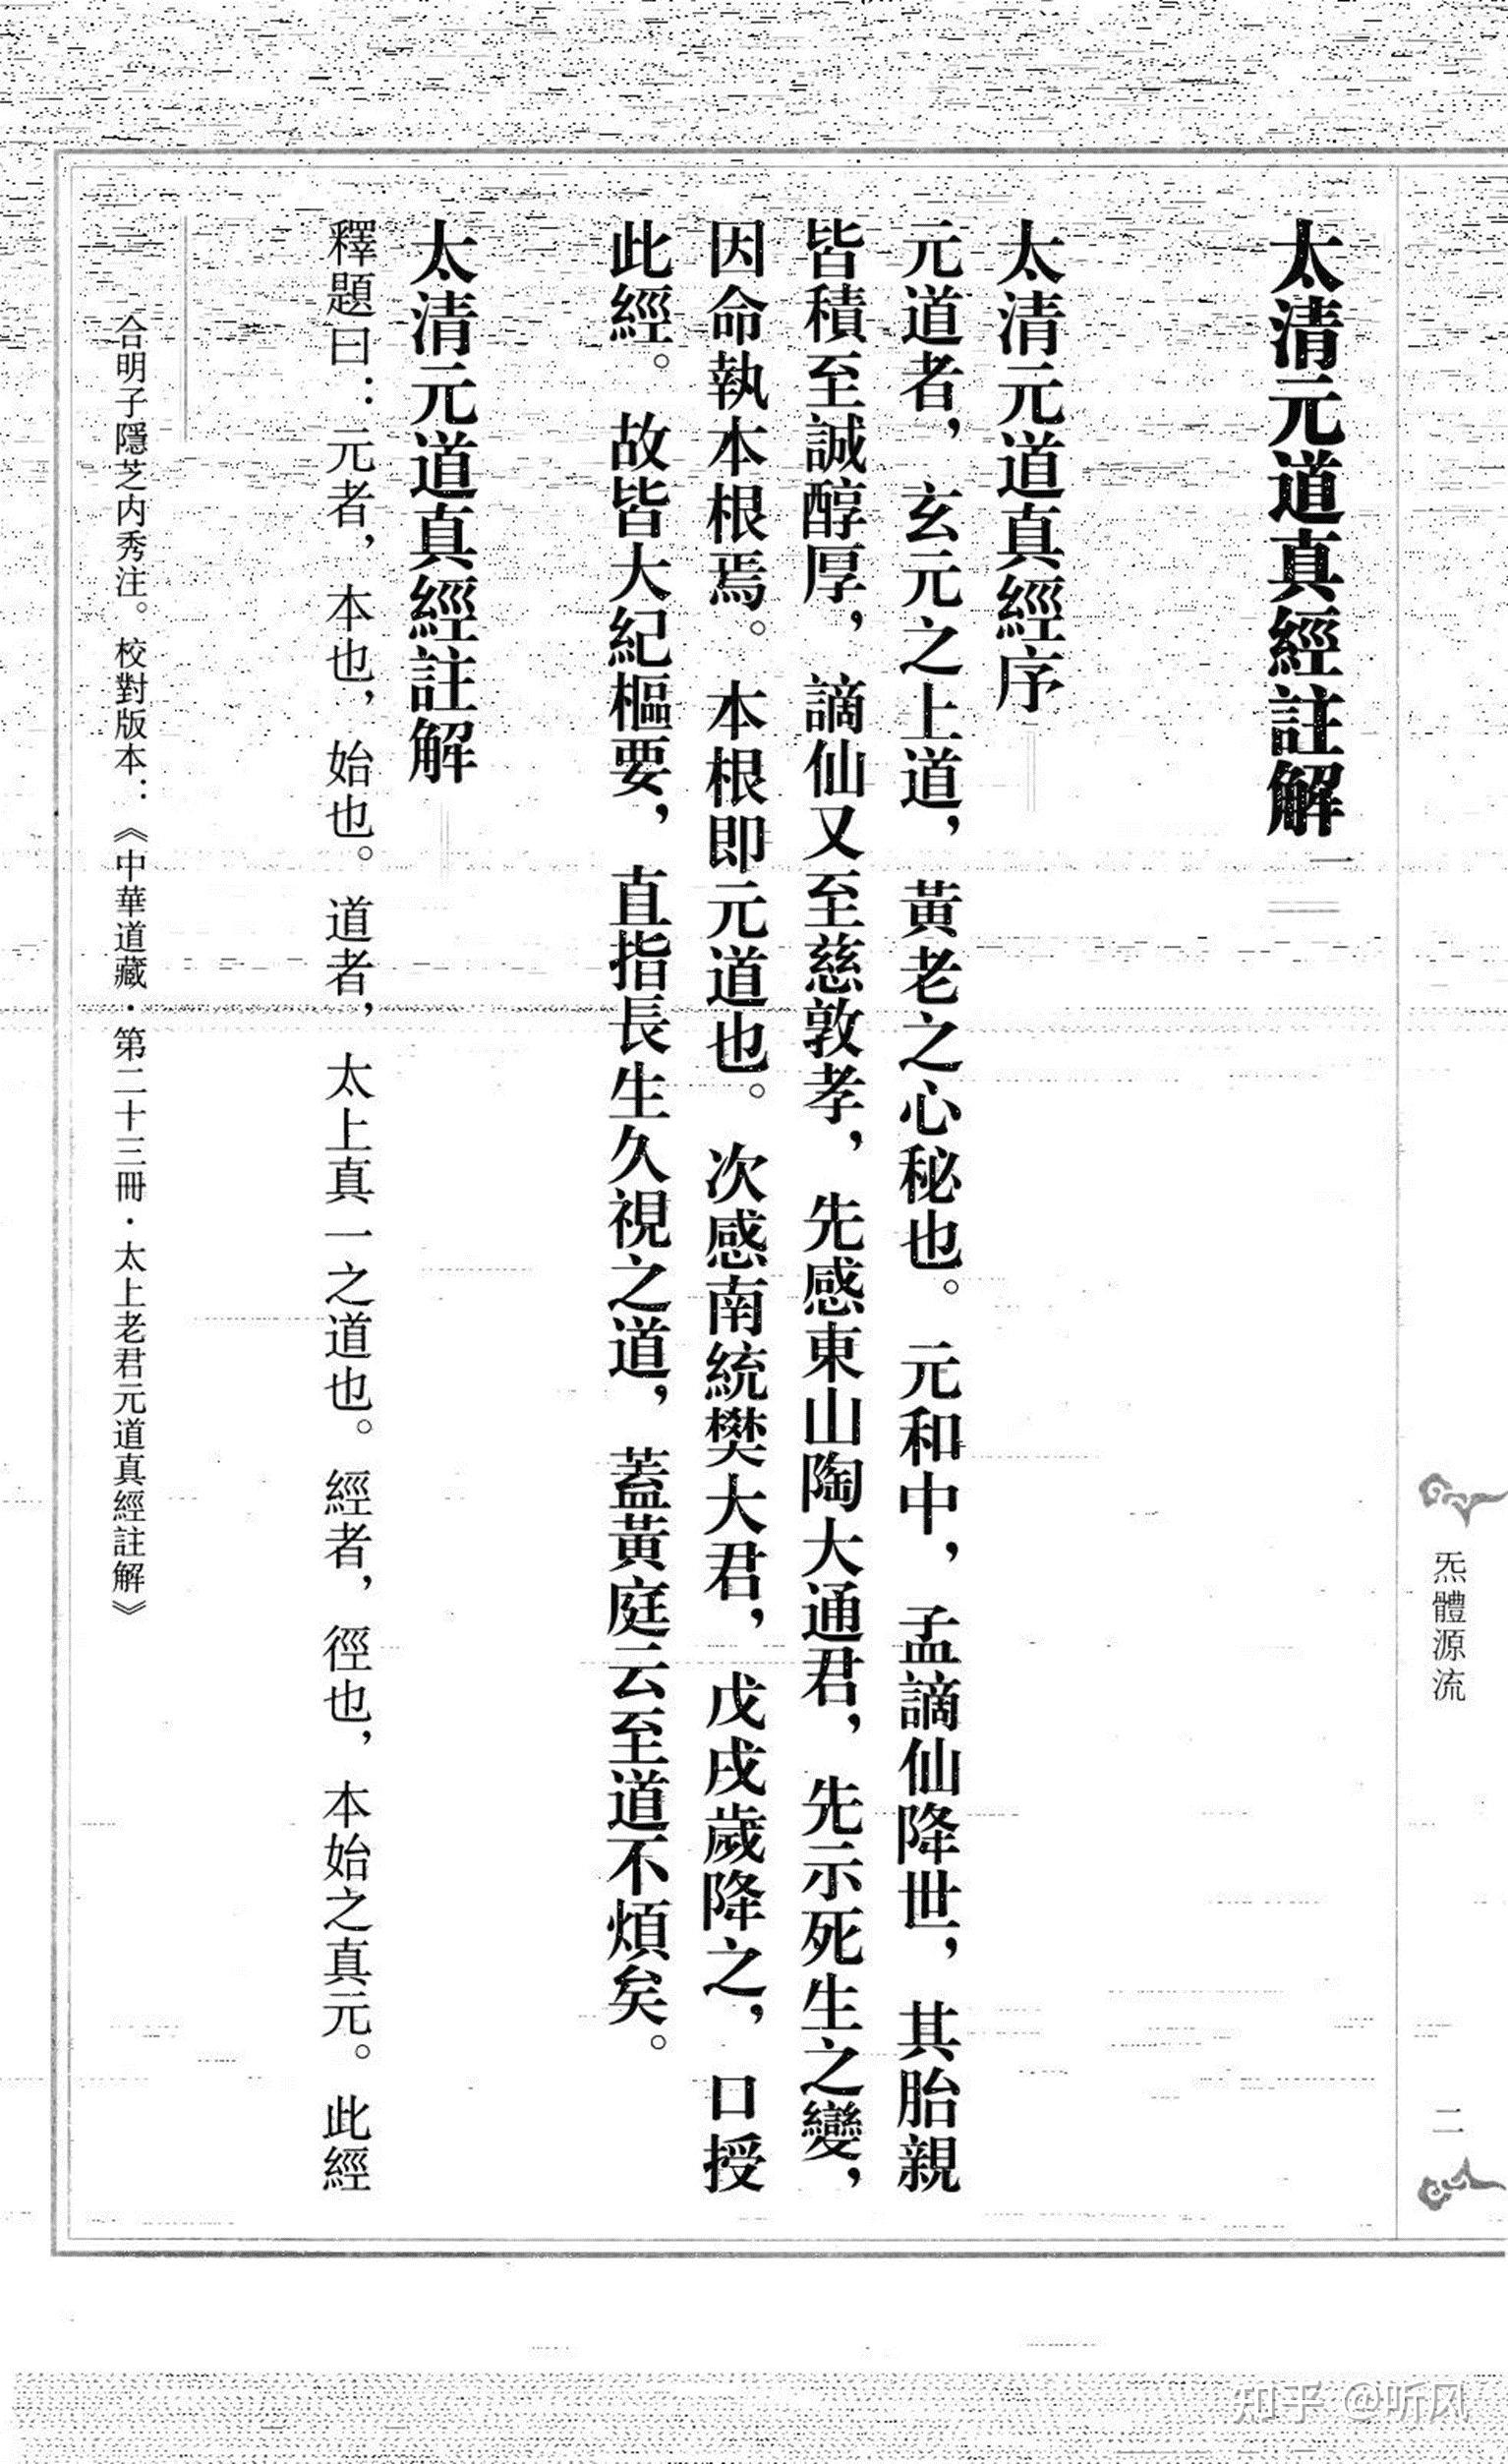 炁體源流
二
太清元道真經註解一
太清元道真經序
元道者，玄元之上道，黃老之心秘也。元和中，孟謫仙降世，其胎親
皆積至誠醇厚，謫仙又至慈敦孝，先感東山陶大通君，先示死生之變，
因命執本根焉。本根即元道也。次感南統樊大君，戊戌歲降之，口授
此經。故皆大紀樞要，直指長生久視之道，蓋黃庭云至道不煩矣。
太清元道真經註解
釋題曰：元者，本也，始也。道者，太上真一之道也。經者，徑也，本始之真元。此經
一 合明子隱芝内秀注。校對版本：《中華道藏·第二十三冊·太上老君元道真經註解》
知乎 @听风